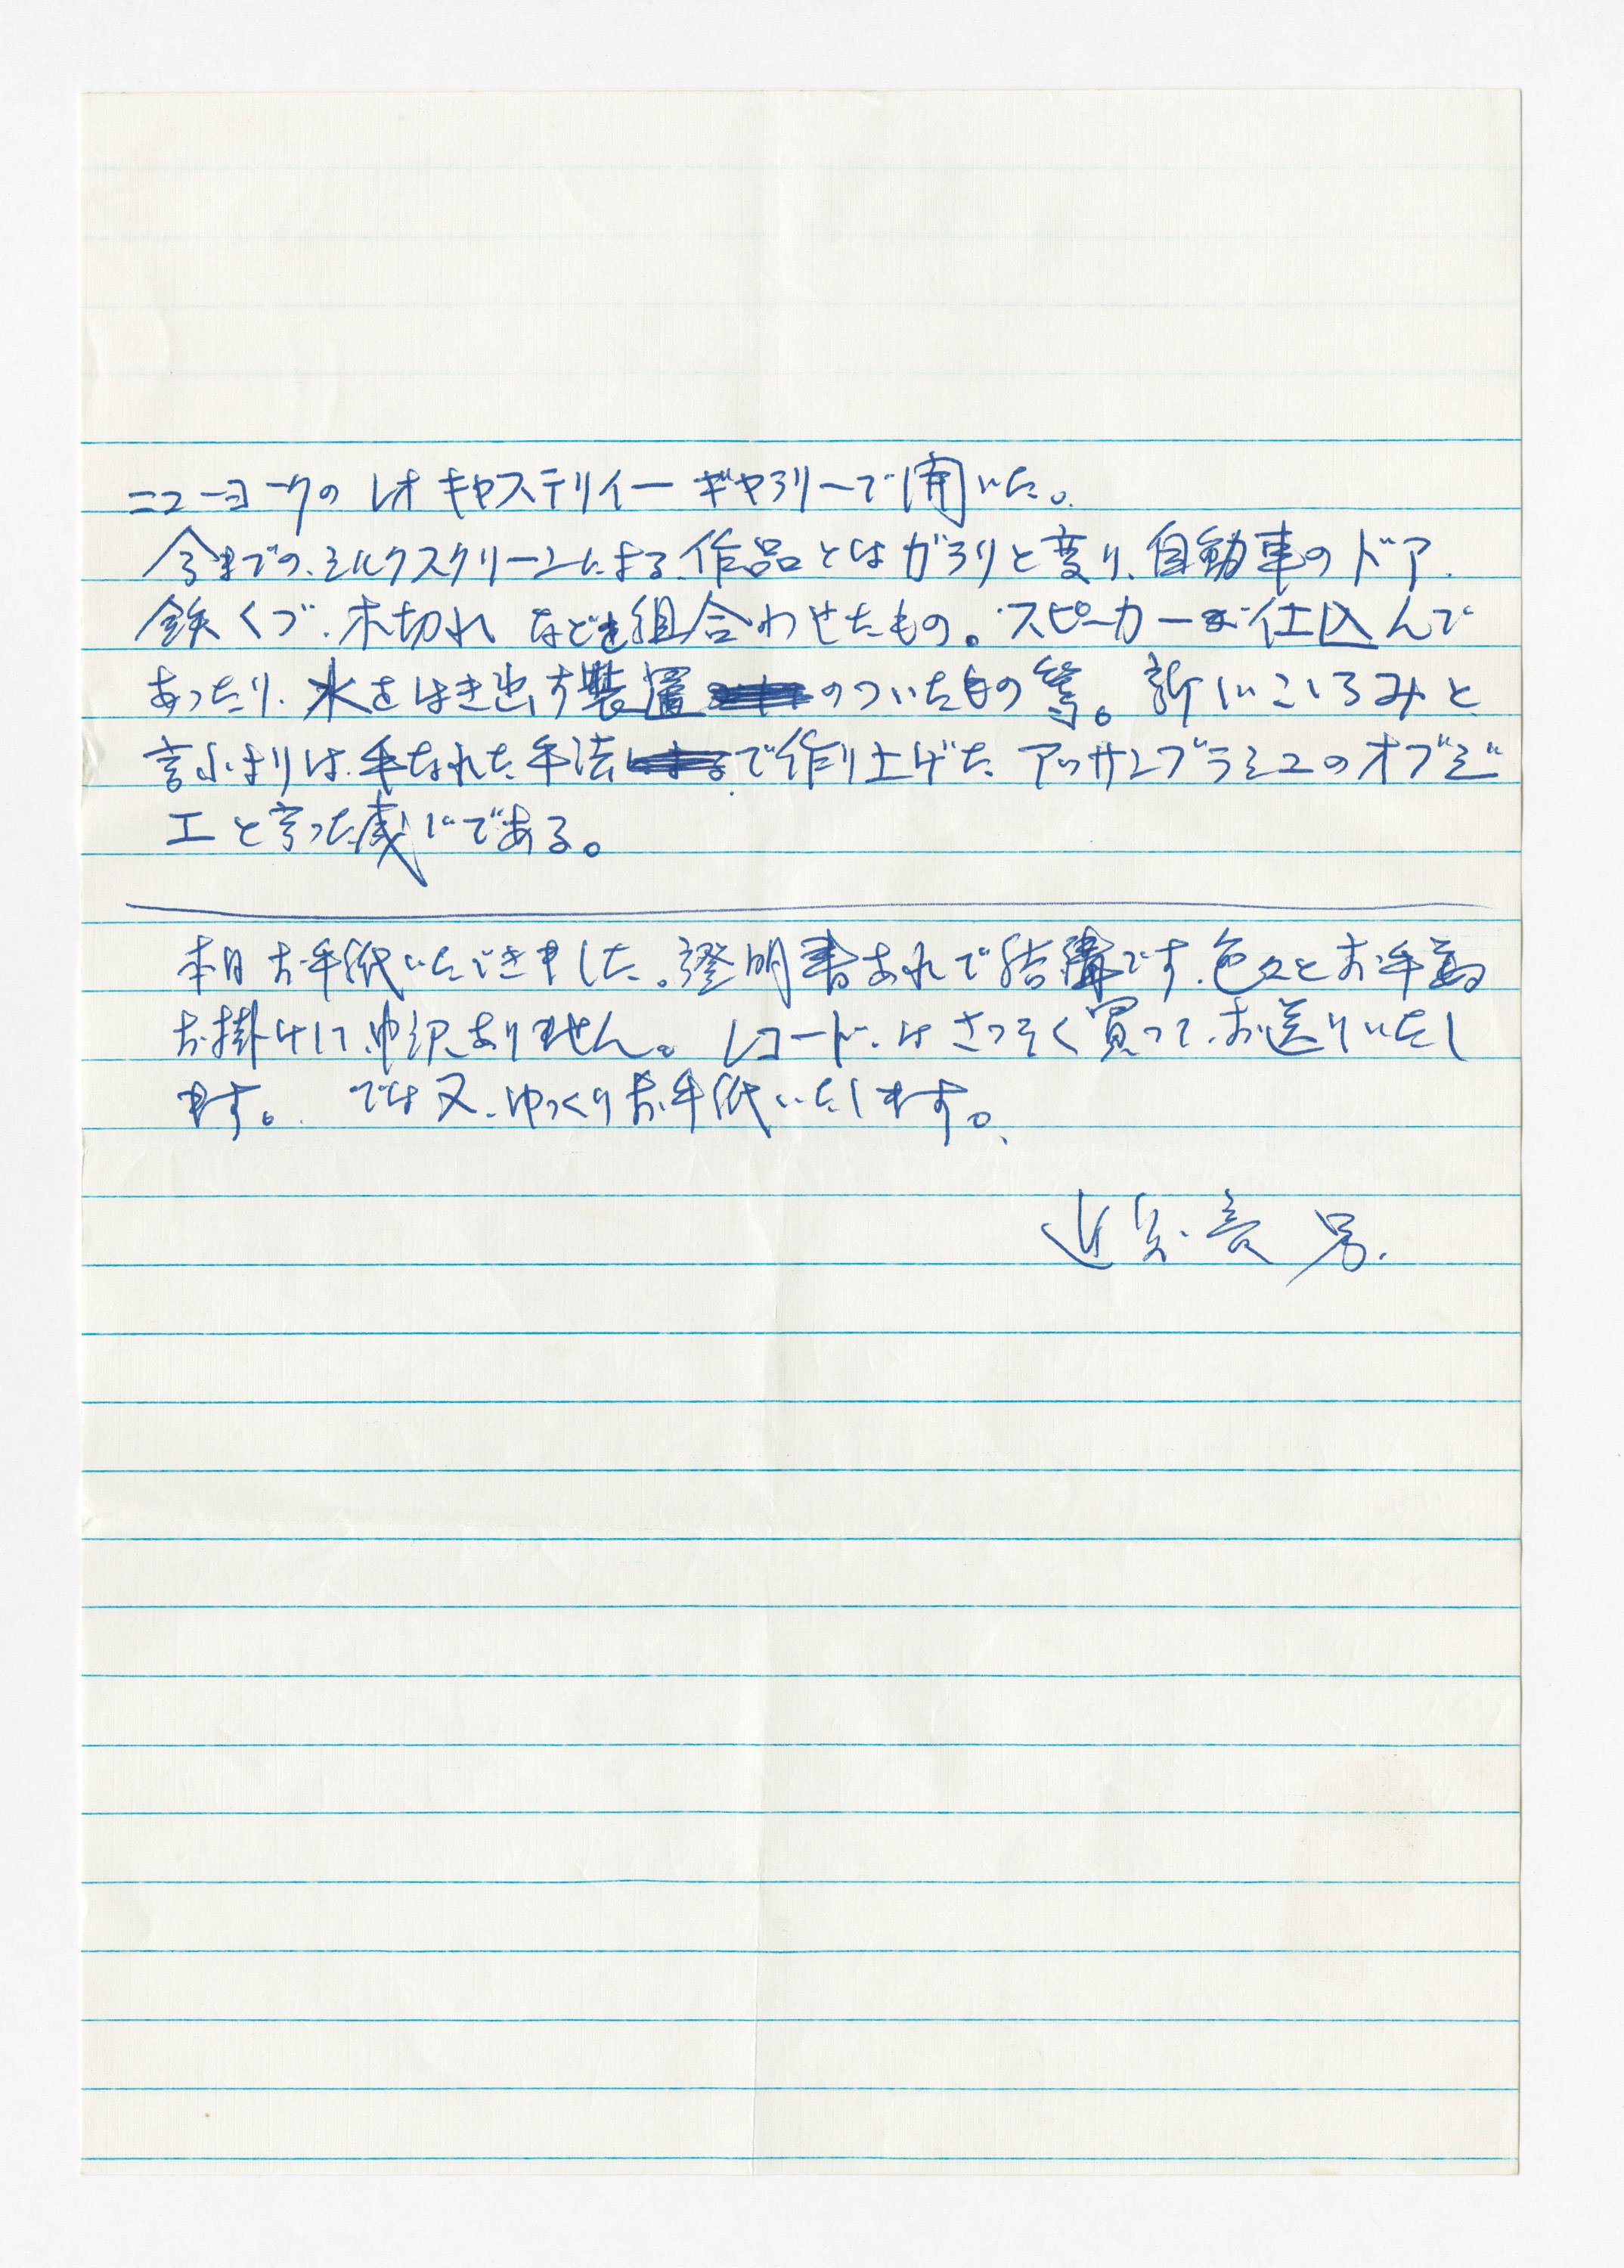 ニューヨークの レオ キャステリイー ギャラリーで開いた。
今までの、シルクスクリーンによる、作品とはガラリと変り、自動車のドア、
鉄くづ、木切れ などを組合わせたもの。スピーカーが仕込んで
あったり、水をはき出す装置のついたもの等。新しいこころみと
言ふよりは、手なれた手法で作り上げた アッサンブラージュのオブジ
エと言った感じである。
本日お手紙いただきました。證明書あれで結構です、色々とお手数
お掛けして、申訳ありません。レコード、はさっそく買って、お送りいたし
ます。では又、ゆっくりお手紙いたします。
男.